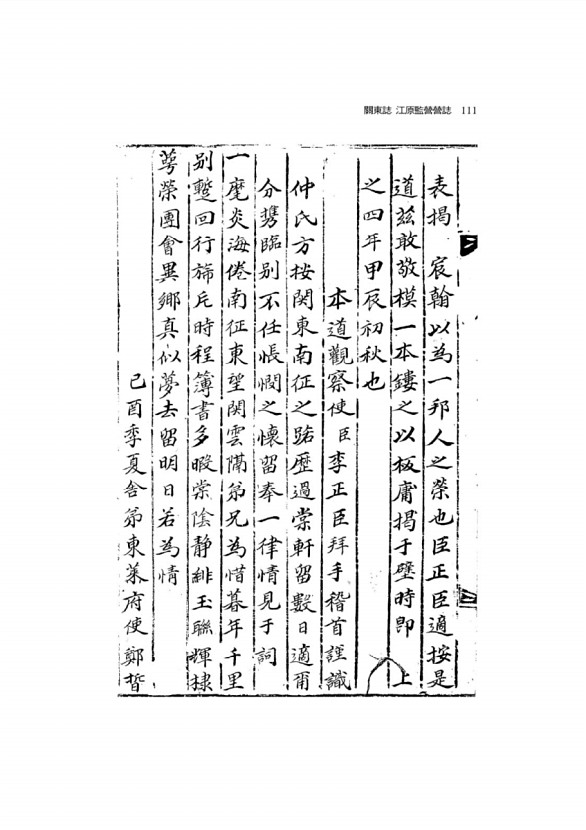 關東誌 江原監營營誌 111
表揭 宸翰以為一邦人之榮也臣正臣適按是
道玆敢敬模一本鏤之以板庸揭于壁時即 上
之四年甲辰初秋也
本道觀察使臣李正臣拜手稽首謹識
仲氏方按関東南征之路歷過棠軒留數日適爾
分携臨别不任悵惘之懷留奉一律情見于詞
一麾炎海倦南征東望関雲隔弟兄為惜暮年千里
别蹔回行旆片時程簿書多暇棠陰静緋玉聯輝棣
萼榮團會異鄉真似夢去留明日若為情
己酉季夏舍弟東萊府使鄭晳